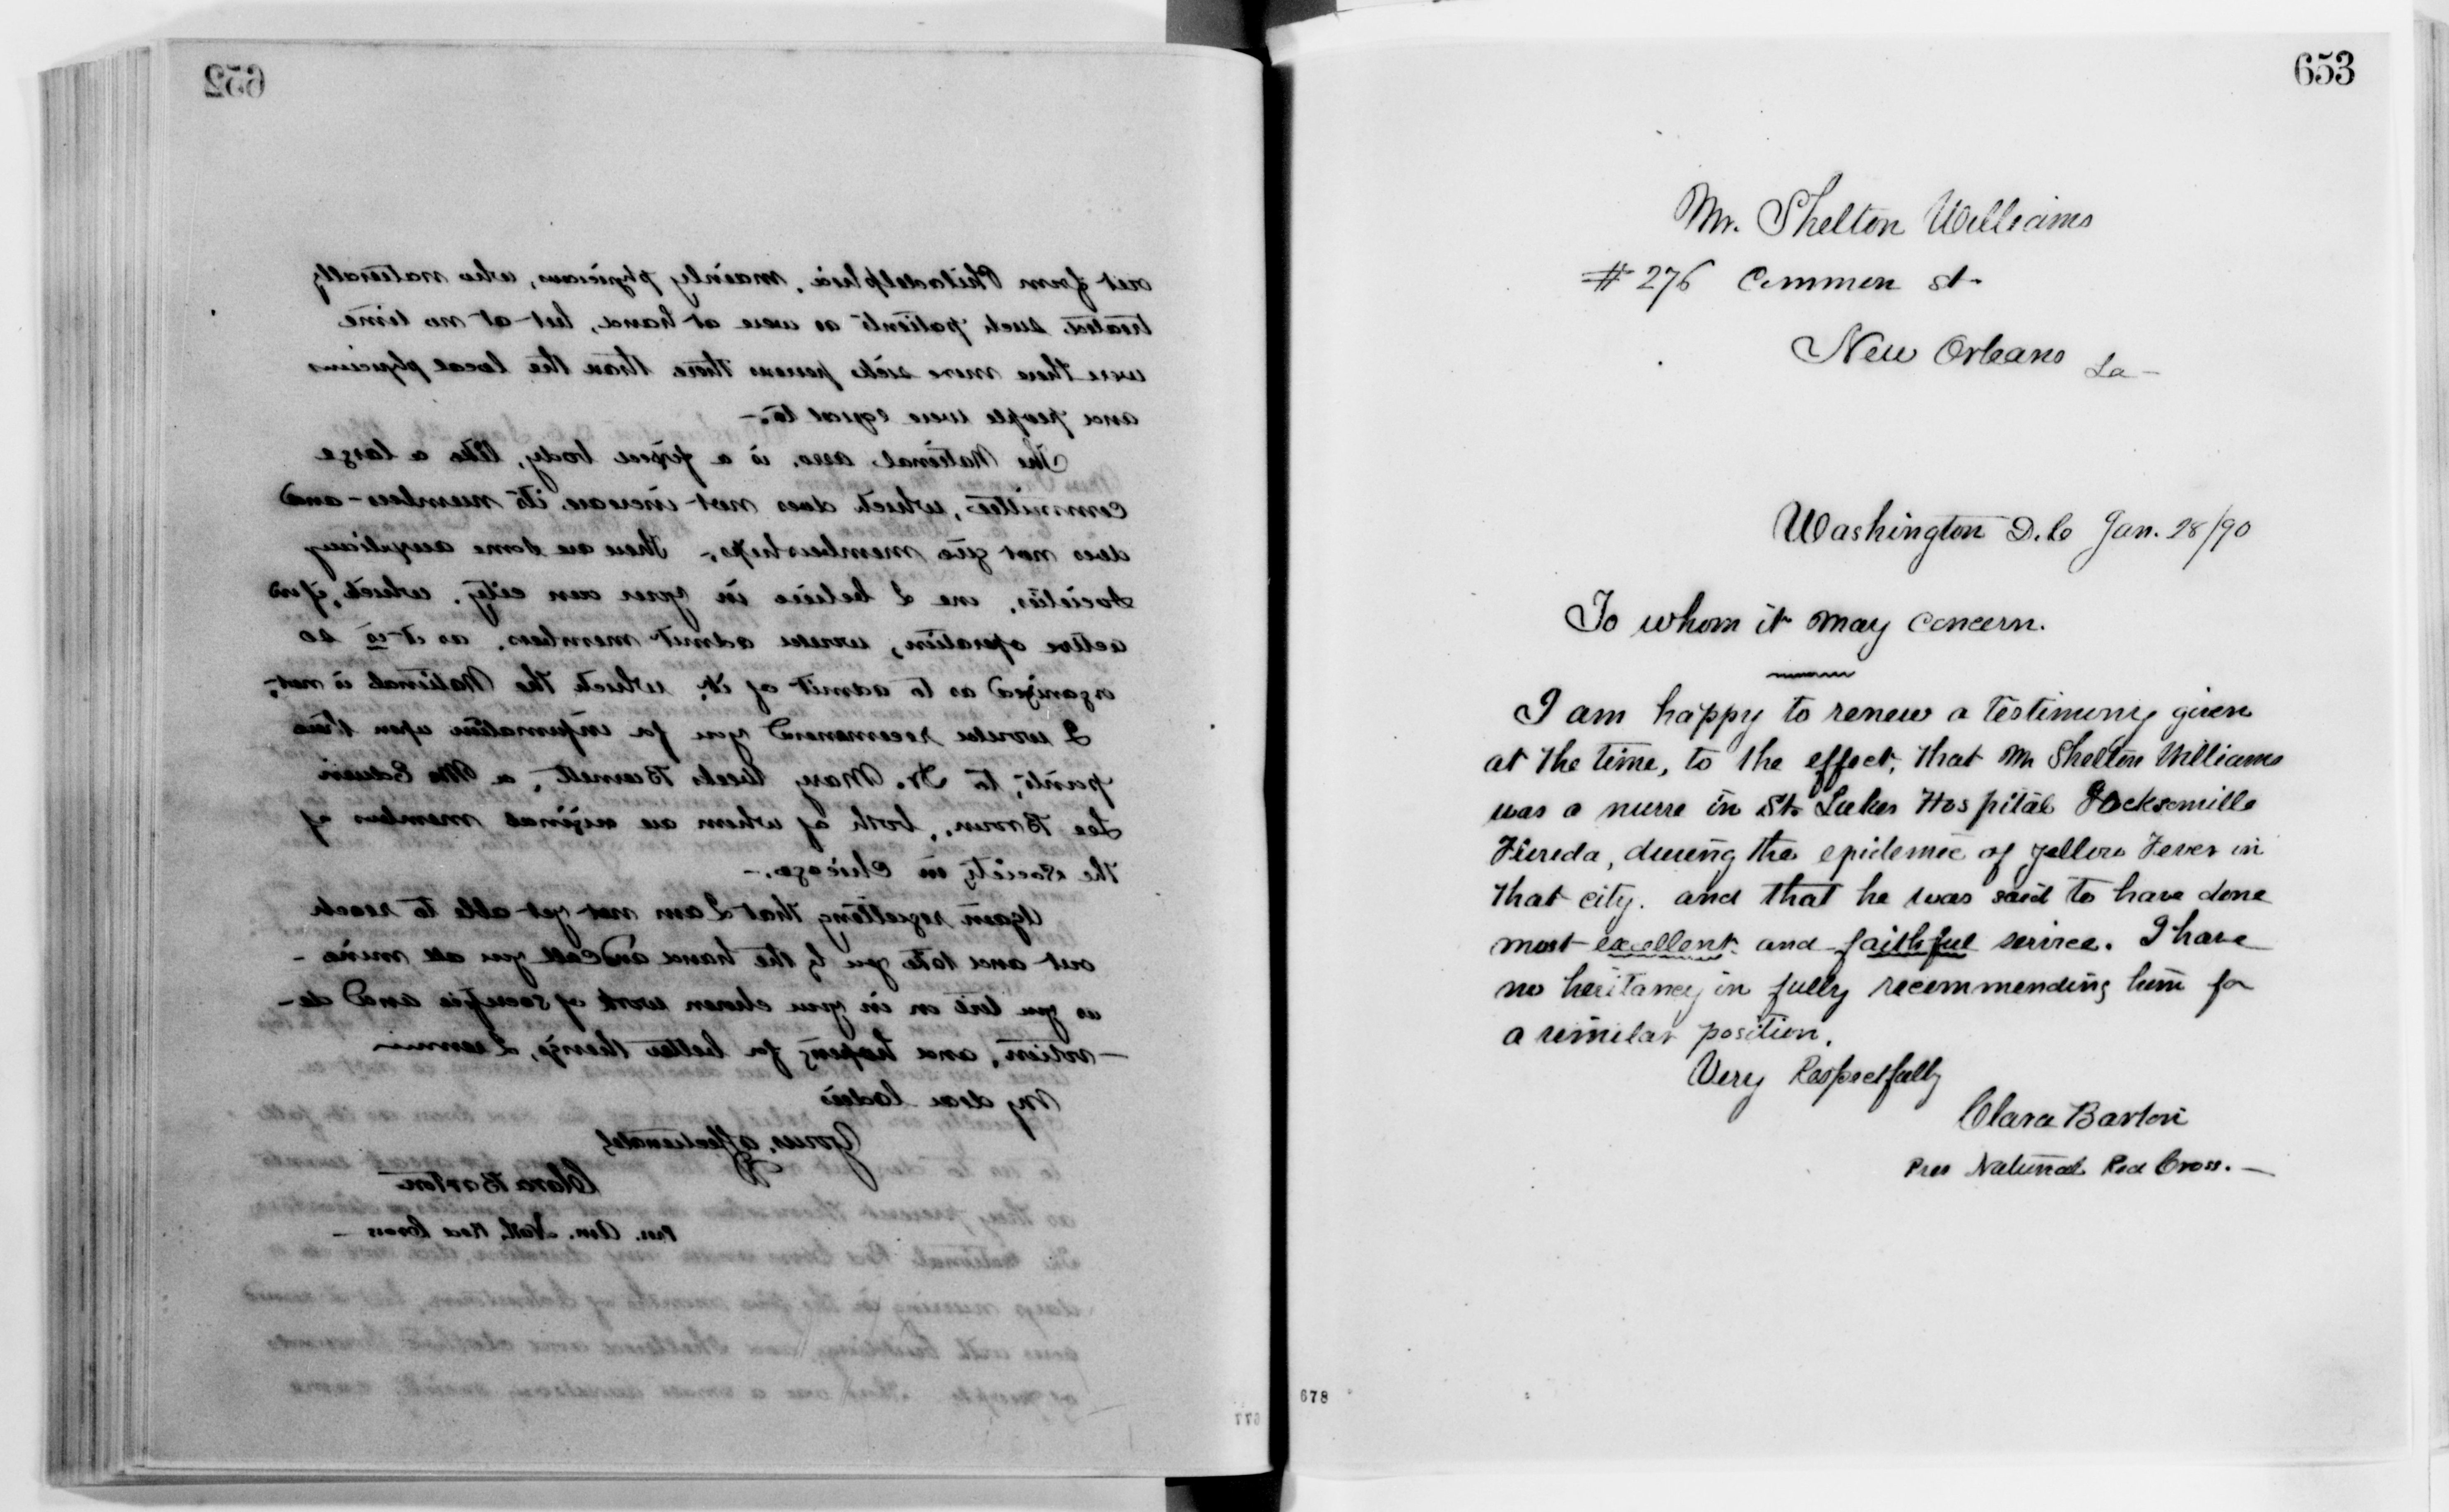 652
out from Philadelphia, mainly physicians, who naturally
treated such patients as were at hand, but at no time
were there more sick persons there than the local physicians
and people were equal to.-
The National asso. is a fixed body, like a large
committee, which does not increase its members - and
does not give memberships. There are some auxiliary
societies, one I believe in your own city, which, if in
active operation, would admit members, as it is so
organized as to admit of it, which the National is not.-
I would recommend you for information upon these
points, to, Dr. Mary Weeks Burnett, or Mr Edwin
Lee Brown, both of whom are original members of
the society in Chicago.-
Again regretting that I am not yet able to reach
out and take you by the hand and call you all mine -
as you live on in your chosen work of sacrifice and de-
-votion, and hoping for better things, I remain
My dear ladies
Yours, affectionately
Clara Barton
Pres. Am. Natl. Red Cross -
677
653
Mr. Shelton Williams
# 276 Common st.
New Orleans La -
Washington D.C Jan. 28/90
To whom it may concern.
I am happy to renew a testimony given
at the time, to the effect, that Mr Shelton Williams
was a nurse in St. Lukes Hospital Jacksonville
Florida, during the epidemic of yellow Fever in
that city. and that he was said to have done
most excellent and faithful service. I have
no hesitancy in fully recommending him for
a similar position.
Very Respectfully
Clara Barton
Pres National Red Cross. -
678